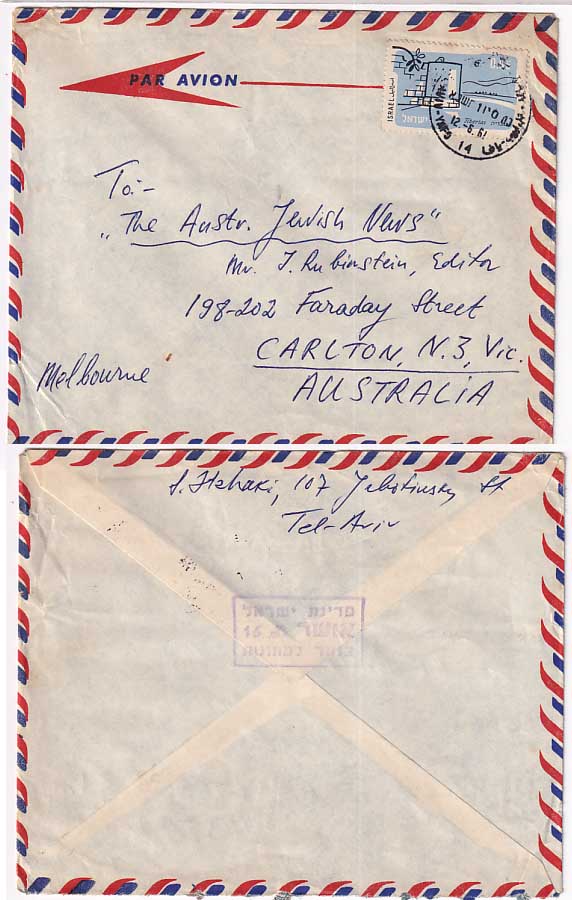 PAR AVION
ISRAEL
Tiberias
12.-6.61
14
To:-
"The Austr. Jewish News"
Mr. J. Rubinstein, Editor
198-202 Faraday Street
CARLTON, N.3, Vic.
Melbourne
AUSTRALIA
S. Itzhaki, 107 Jabotinsky St
Tel-Aviv
מדינת ישראל
אושר
16